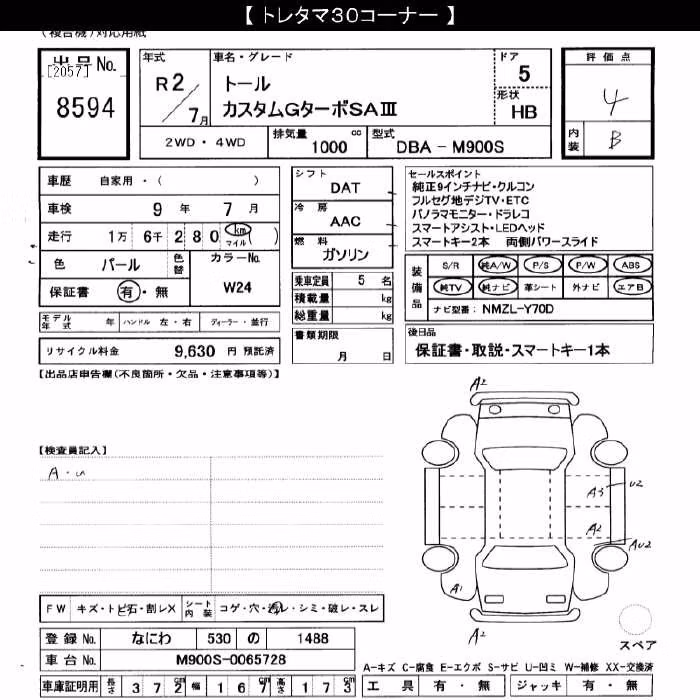 【 トレタマ30コーナー 】
(複合機)対応用紙
出品No.
[2057]
8594
年式
R 2 / 7月
車名・グレード
トール
カスタムGターボSAⅢ
ドア
5
形状
HB
評価点
4
内装
B
2WD・4WD
排気量 1000 cc
型式 DBA - M900S
車歴 自家用・( )
車検 9年 7月
走行 1万 6千 2 8 0 km マイル ( )
色 パール 色替
カラーNo.
W24
保証書 有・無
モデル年式 年 ハンドル 左・右 ディーラー・並行
リサイクル料金 9,630 円 預託済
シフト
DAT
冷房
AAC
燃料
ガソリン
乗車定員 5 名
積載量 kg
総重量 kg
書類期限
月 日
セールスポイント
純正9インチナビ・クルコン
フルセグ地デジTV・ETC
パノラマモニター・ドラレコ
スマートアシスト・LEDヘッド
スマートキー2本 両側パワースライド
装備品
S/R 純A/W P/S P/W ABS
純TV 純ナビ 革シート 外ナビ エアB
ナビ型番: NMZL-Y70D
後日品
保証書・取説・スマートキー1本
【出品店申告欄(不良箇所・欠品・注意事項等)】
【検査員記入】
A・U
A2
A3
U2
A2
AU2
A1
A2
スペア
FW キズ・トビ石・割レX
シート内装 コゲ・穴・汚レ・シミ・破レ・スレ
登録No. なにわ 530 の 1488
車台No. M900S-0065728
車庫証明用 長さ 3 7 2 cm 幅 1 6 7 cm 高さ 1 7 3 cm
A-キズ C-腐食 E-エクボ S-サビ U-凹ミ W-補修 XX-交換済
工具 有・無 ジャッキ 有・無